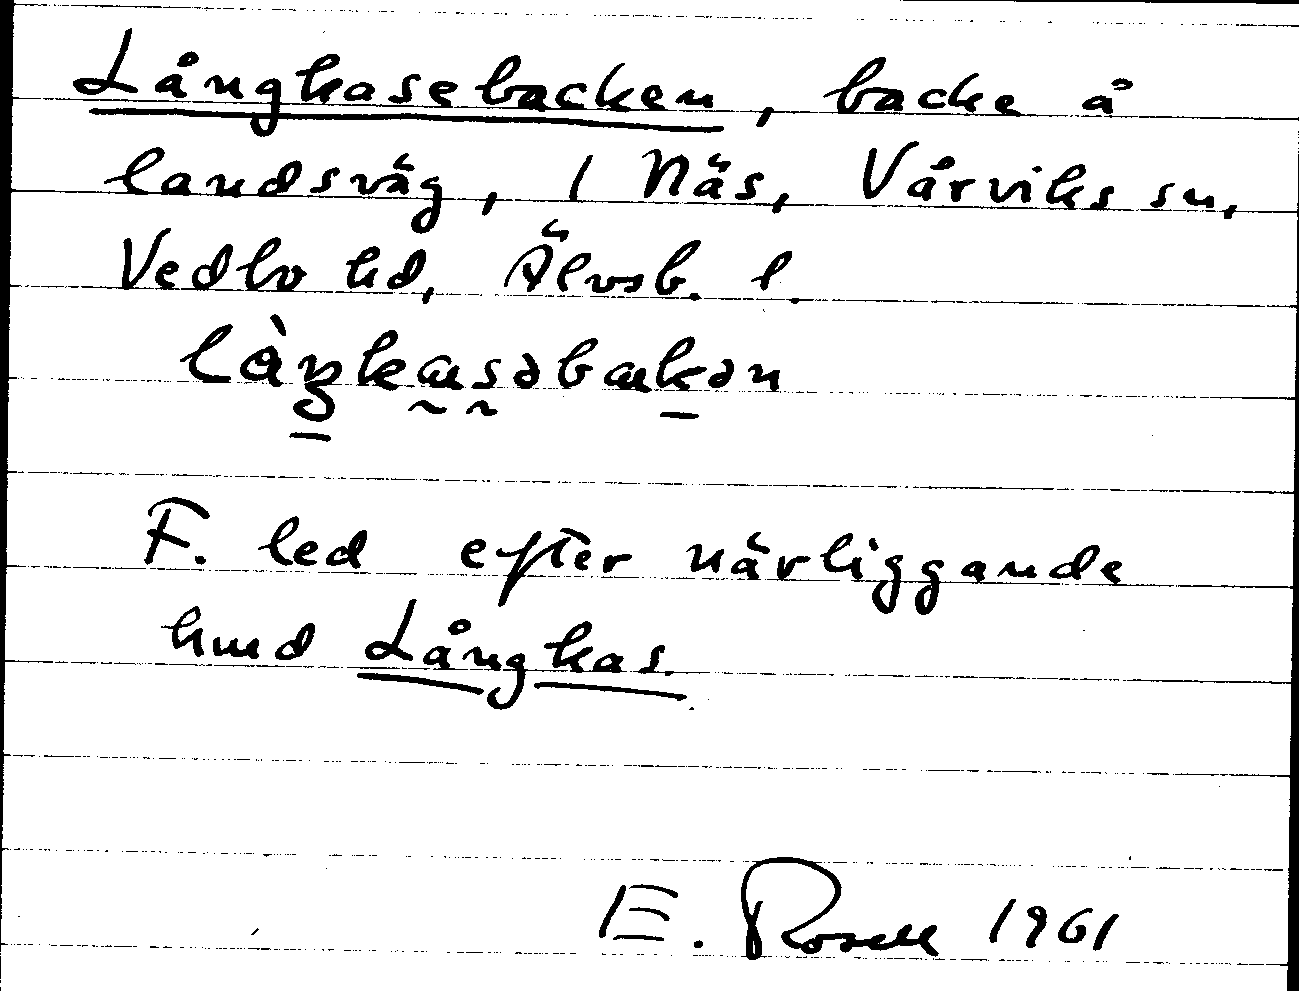 Långkasebacken, backe å
landsväg, 1 Näs, Vårviks sn,
Vedbo hd, Älvsb. l.
làŋkasəbakən
F. led efter närliggande
hmd Långkas.
E. Rosell 1961